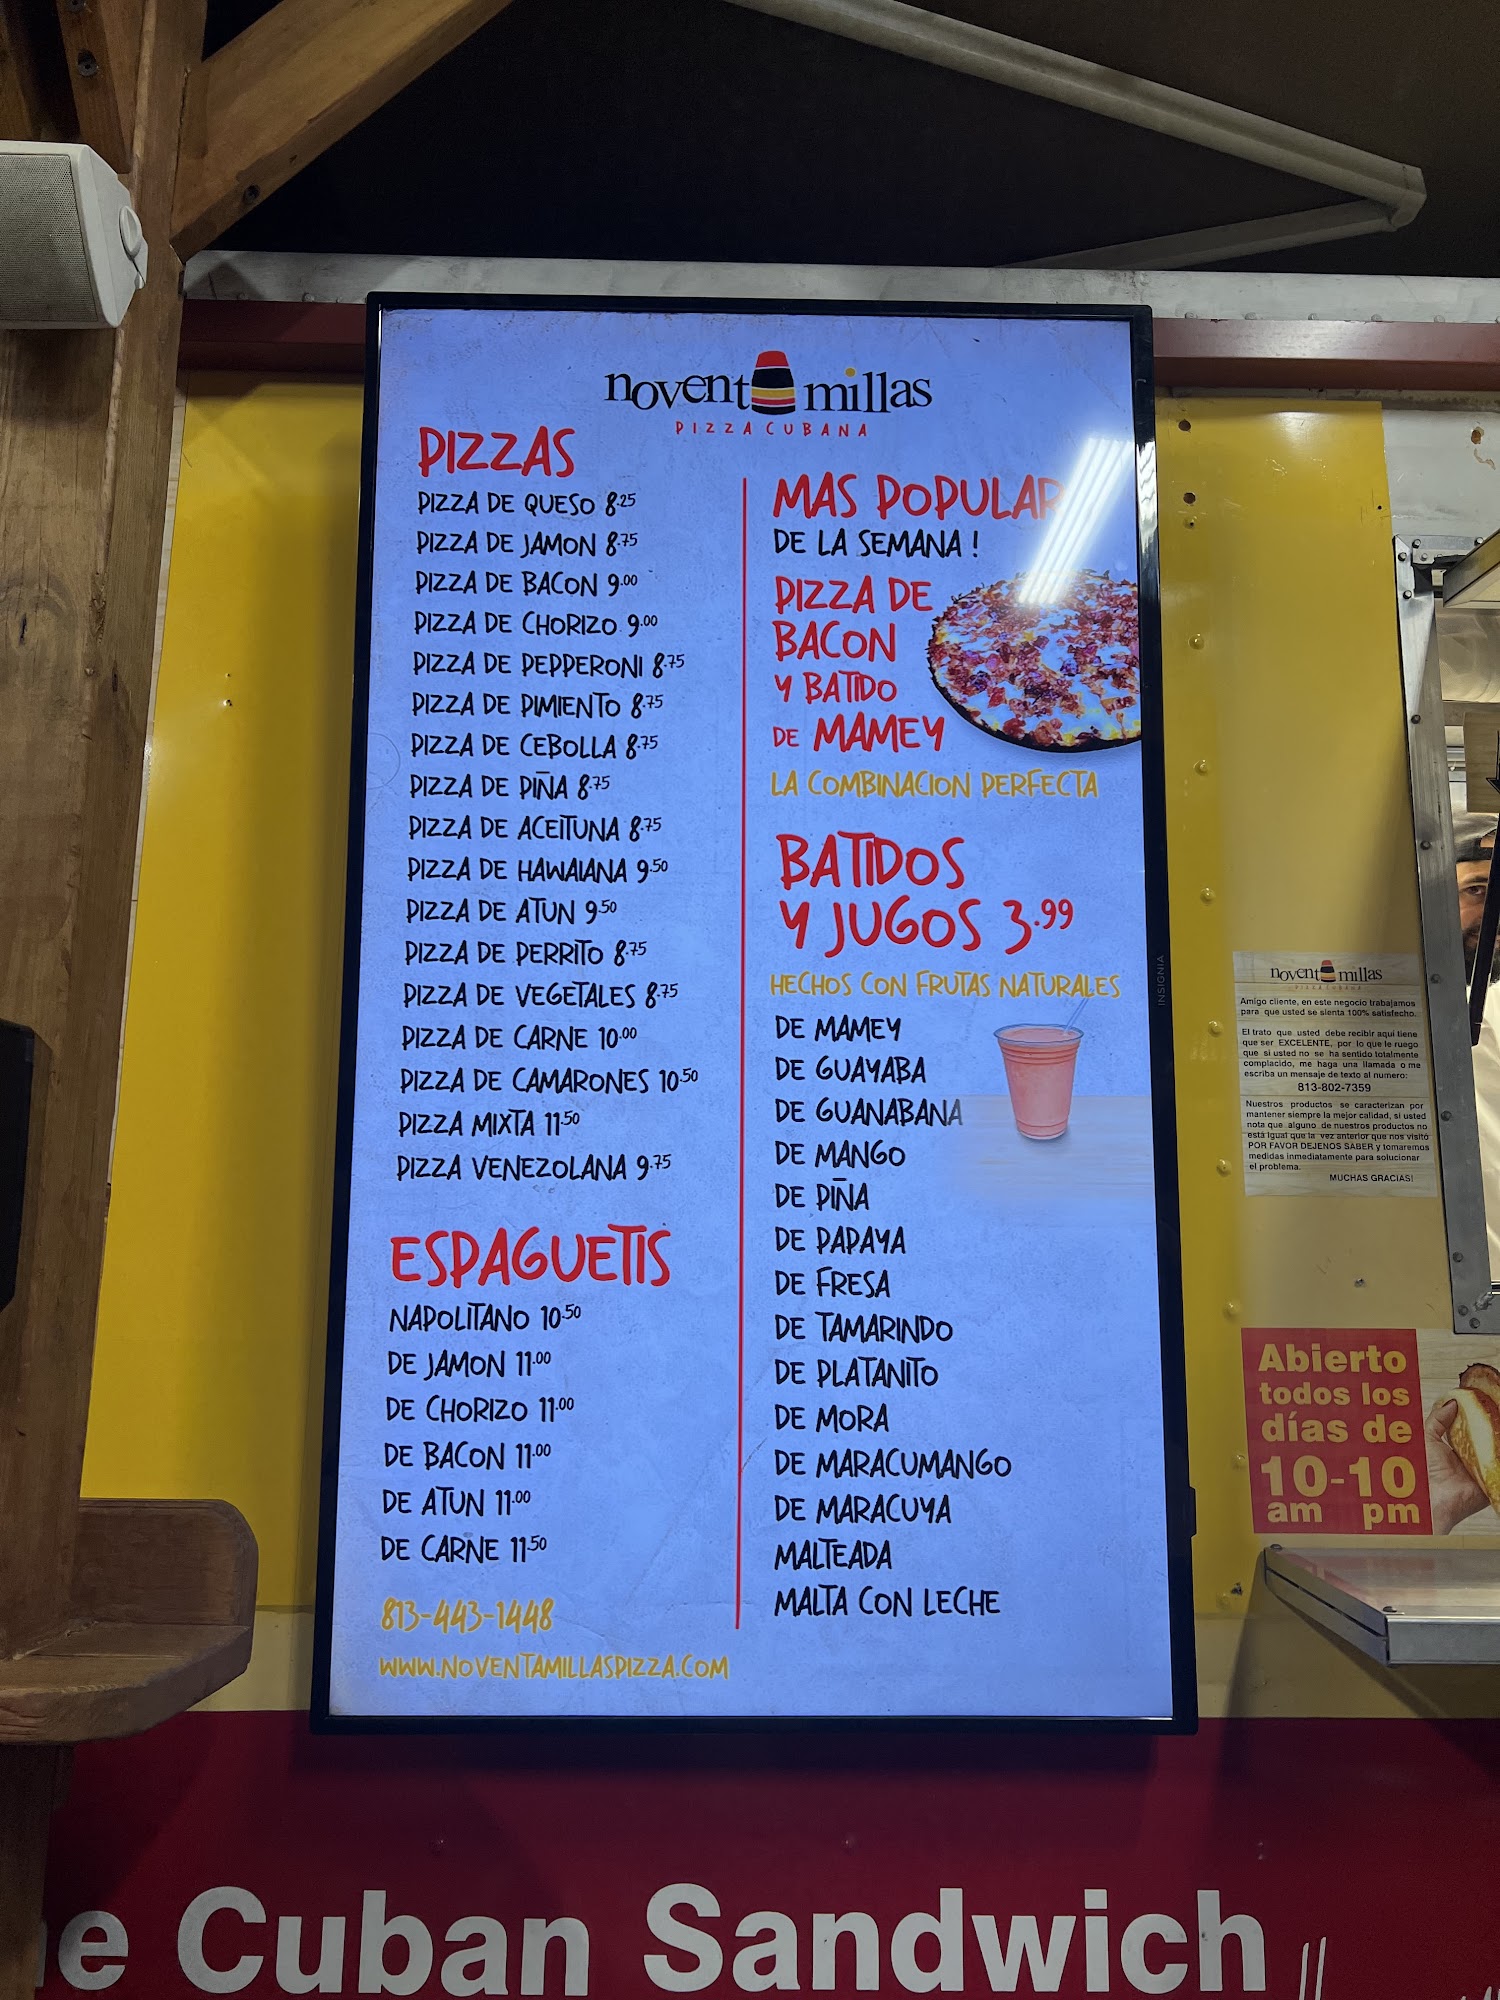 novent millas
PIZZA CUBANA
PIZZAS
PIZZA DE QUESO 8.25
PIZZA DE JAMON 8.75
PIZZA DE BACON 9.00
PIZZA DE CHORIZO 9.00
PIZZA DE PEPPERONI 8.75
PIZZA DE PIMIENTO 8.75
PIZZA DE CEBOLLA 8.75
PIZZA DE PIÑA 8.75
PIZZA DE ACEITUNA 8.75
PIZZA DE HAWAIANA 9.50
PIZZA DE ATUN 9.50
PIZZA DE PERRITO 8.75
PIZZA DE VEGETALES 8.75
PIZZA DE CARNE 10.00
PIZZA DE CAMARONES 10.50
PIZZA MIXTA 11.50
PIZZA VENEZOLANA 9.75
ESPAGUETIS
NAPOLITANO 10.50
DE JAMON 11.00
DE CHORIZO 11.00
DE BACON 11.00
DE ATUN 11.00
DE CARNE 11.50
813-443-1448
WWW.NOVENTAMILLASPIZZA.COM
MAS POPULAR
DE LA SEMANA !
PIZZA DE
BACON
Y BATIDO
DE MAMEY
LA COMBINACION PERFECTA
BATIDOS
Y JUGOS 3.99
HECHOS CON FRUTAS NATURALES
DE MAMEY
DE GUAYABA
DE GUANABANA
DE MANGO
DE PIÑA
DE PAPAYA
DE FRESA
DE TAMARINDO
DE PLATANITO
DE MORA
DE MARACUMANGO
DE MARACUYA
MALTEADA
MALTA CON LECHE
INSIGNIA
novent millas
PIZZA CUBANA
Amigo cliente, en este negocio trabajamos
para que usted se sienta 100% satisfecho.
El trato que usted debe recibir aqui tiene
que ser EXCELENTE, por lo que le ruego
que si usted no se ha sentido totalmente
complacido, me haga una llamada o me
escriba un mensaje de texto al numero:
813-802-7359
Nuestros productos se caracterizan por
mantener siempre la mejor calidad, si usted
nota que alguno de nuestros productos no
está igual que la vez anterior que nos visitó
POR FAVOR DEJENOS SABER y tomaremos
medidas inmediatamente para solucionar
el problema.
MUCHAS GRACIAS!
Abierto
todos los
días de
10-10
am pm
e Cuban Sandwich